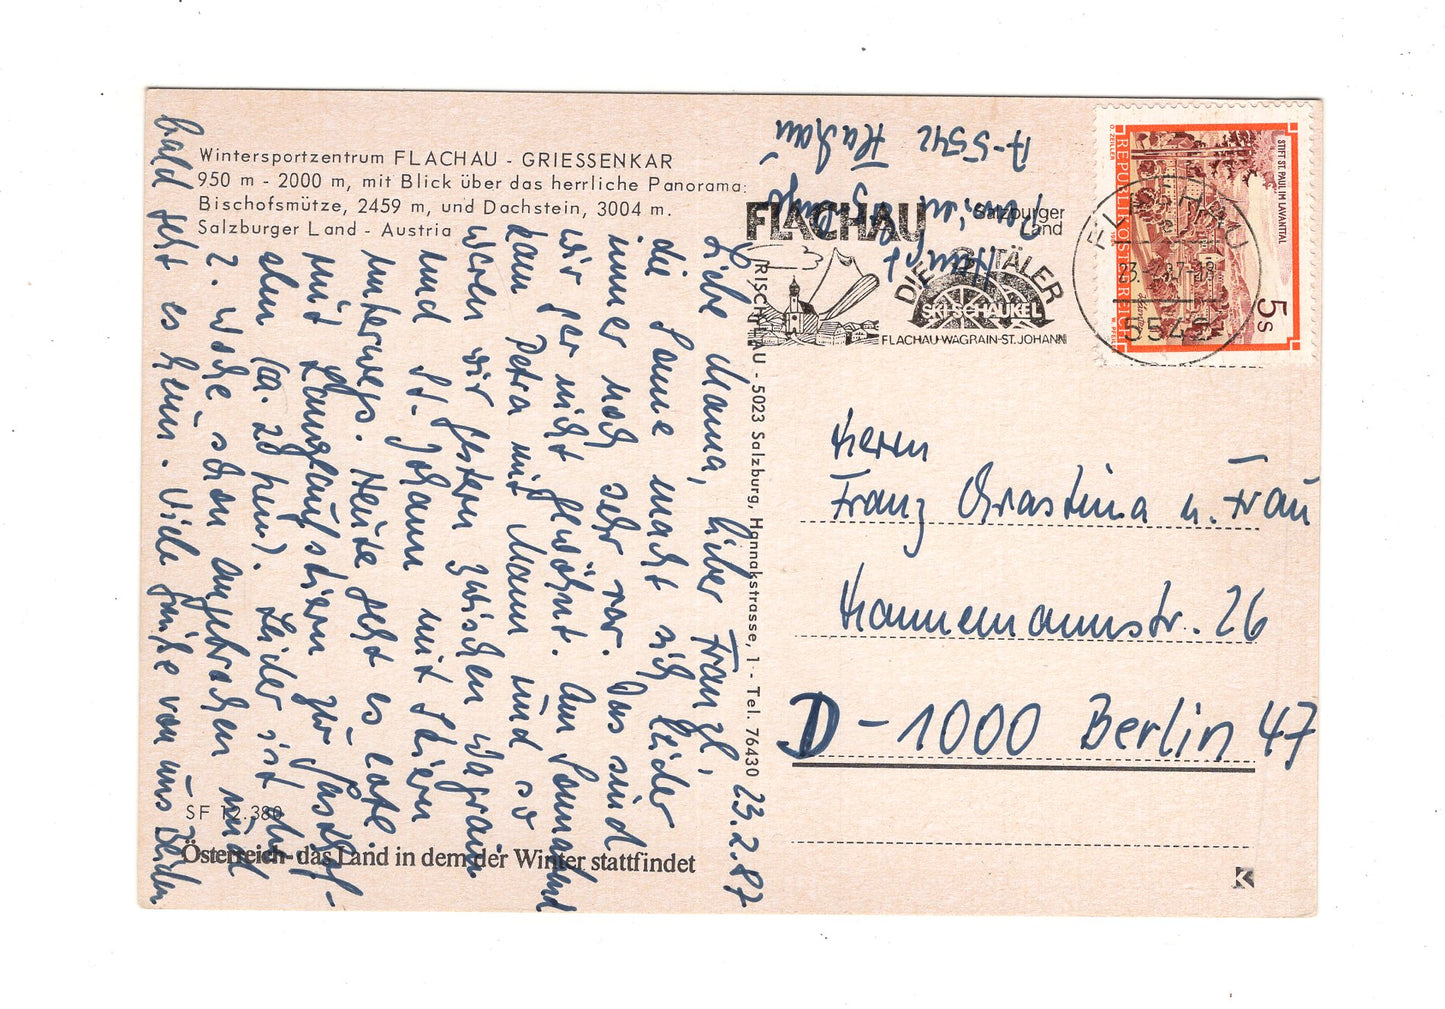 Wintersportzentrum FLACHAU - GRIESSENKAR
950 m - 2000 m, mit Blick über das herrliche Panorama:
Bischofsmütze, 2459 m, und Dachstein, 3004 m.
Salzburger Land - Austria
23.2.87
Liebe Mama, lieber Franzl,
die Sonne macht sich leider
immer noch sehr rar. Das sind
wir gar nicht gewöhnt. Am Sonnabend
kam Petra mit Mann und so
waren wir gestern zwischen Wagrain
und St. Johann mit Skiern
unterwegs. Heute geht es
mit Langlaufskiern zur
alm (ca. 28 km). Leider ist die
2. Woche schon angebrochen und
bald geht es heim. Viele Grüße von uns Beiden
SF 12.380
Österreich - das Land in dem der Winter stattfindet
RISCH-LAU - 5023 Salzburg, Hannakstrasse, 1 - Tel. 76430
A-5542 Flachau
FLACHAU
Salzburger
Land
DIE 3 TÄLER
SKI-SCHAUKEL
FLACHAU-WAGRAIN-ST. JOHANN
FLACHAU
23. 2.87-18
5542
REPUBLIK ÖSTERREICH
STIFT ST. PAUL IM LAVANTTAL
5 S
O. ZEILLER
W. PFEILER
Herrn
Franz Chrastina u. Frau
Hannemannstr. 26
D-1000 Berlin 47
K